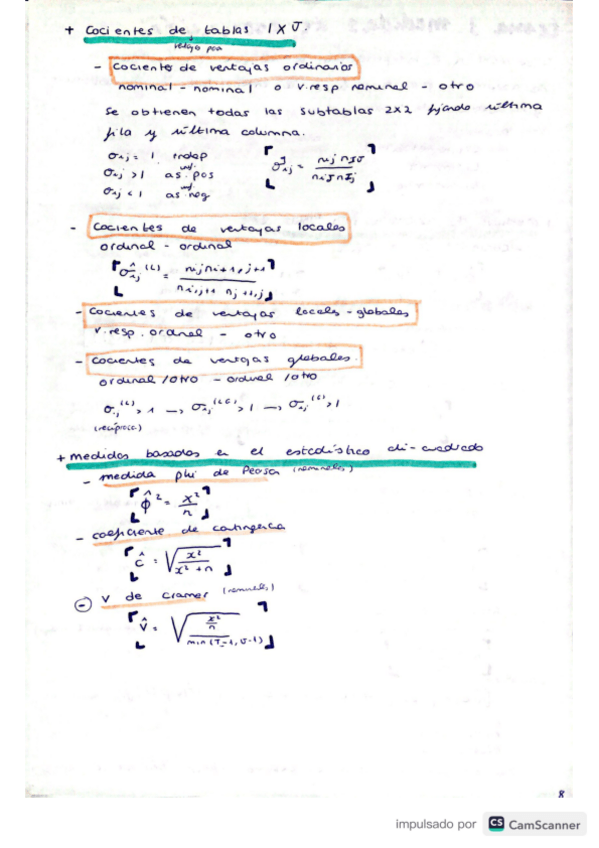 + Cocientes de tablas I X J.
ventajas para
- Cociente de ventajas ordinarios
nominal - nominal o v.resp nominal - otro
Se obtienen todas las subtablas 2x2 fijando última
fila y última columna.
σij = 1 indep
σij > 1 as. pos
σij < 1 as neg
σ̂ij = nij nIJ / niJ nIj
- Cocientes de ventajas locales
ordinal - ordinal
σ̂ij (L) = nij ni+1,j+1 / ni,j+1 nj+1,j
- Cocientes de ventajas locales - globales
v. resp. ordinal - otro
- Cocientes de ventajas globales.
ordinal / otro - ordinal / otro
σij (L) > 1 → σij (LG) > 1 → σij (G) > 1
(recíproca)
+ medidas basadas en el estadístico chi-cuadrado
- medida phi de Pearson (nominales)
ϕ̂² = x² / n
- coeficiente de contingencia
ĉ = √ x² / x² + n
- V de Cramer (nominales)
V̂ = √ x²/n / min (I-1, J-1)
8
impulsado por CS CamScanner